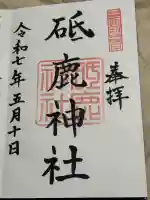 奉拝
砥鹿神社
令和七年五月十日